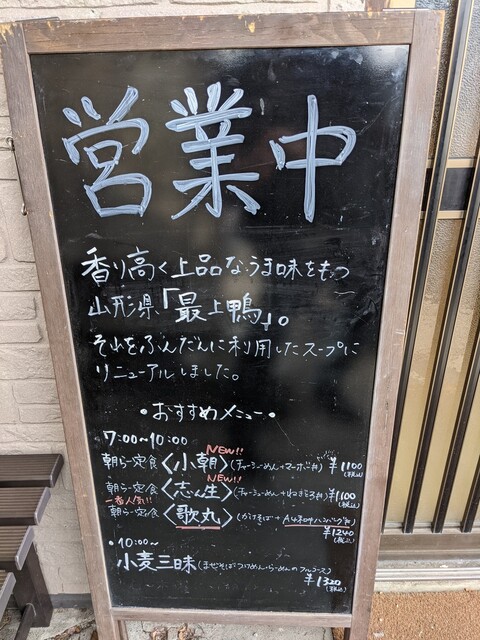 営業中
香り高く上品なうま味をもつ
山形県「最上鴨」。
それをふんだんに利用したスープに
リニューアルしました。
・おすすめメニュー・
7:00〜10:00
NEW!!
朝らー定食〈小朝〉(チャーシューめん+マーボ丼) ¥1100(税込)
NEW!!
朝らー定食〈志ん生〉(チャーシューめん+ねぎとろ丼) ¥1100(税込)
一番人気!!
朝らー定食〈歌丸〉(かけそば+A4和牛ハンバーグ丼)
¥1240(税込)
・10:00〜
小麦三昧(まぜそば・つけめん・らーめんのフルコース)
¥1320(税込)